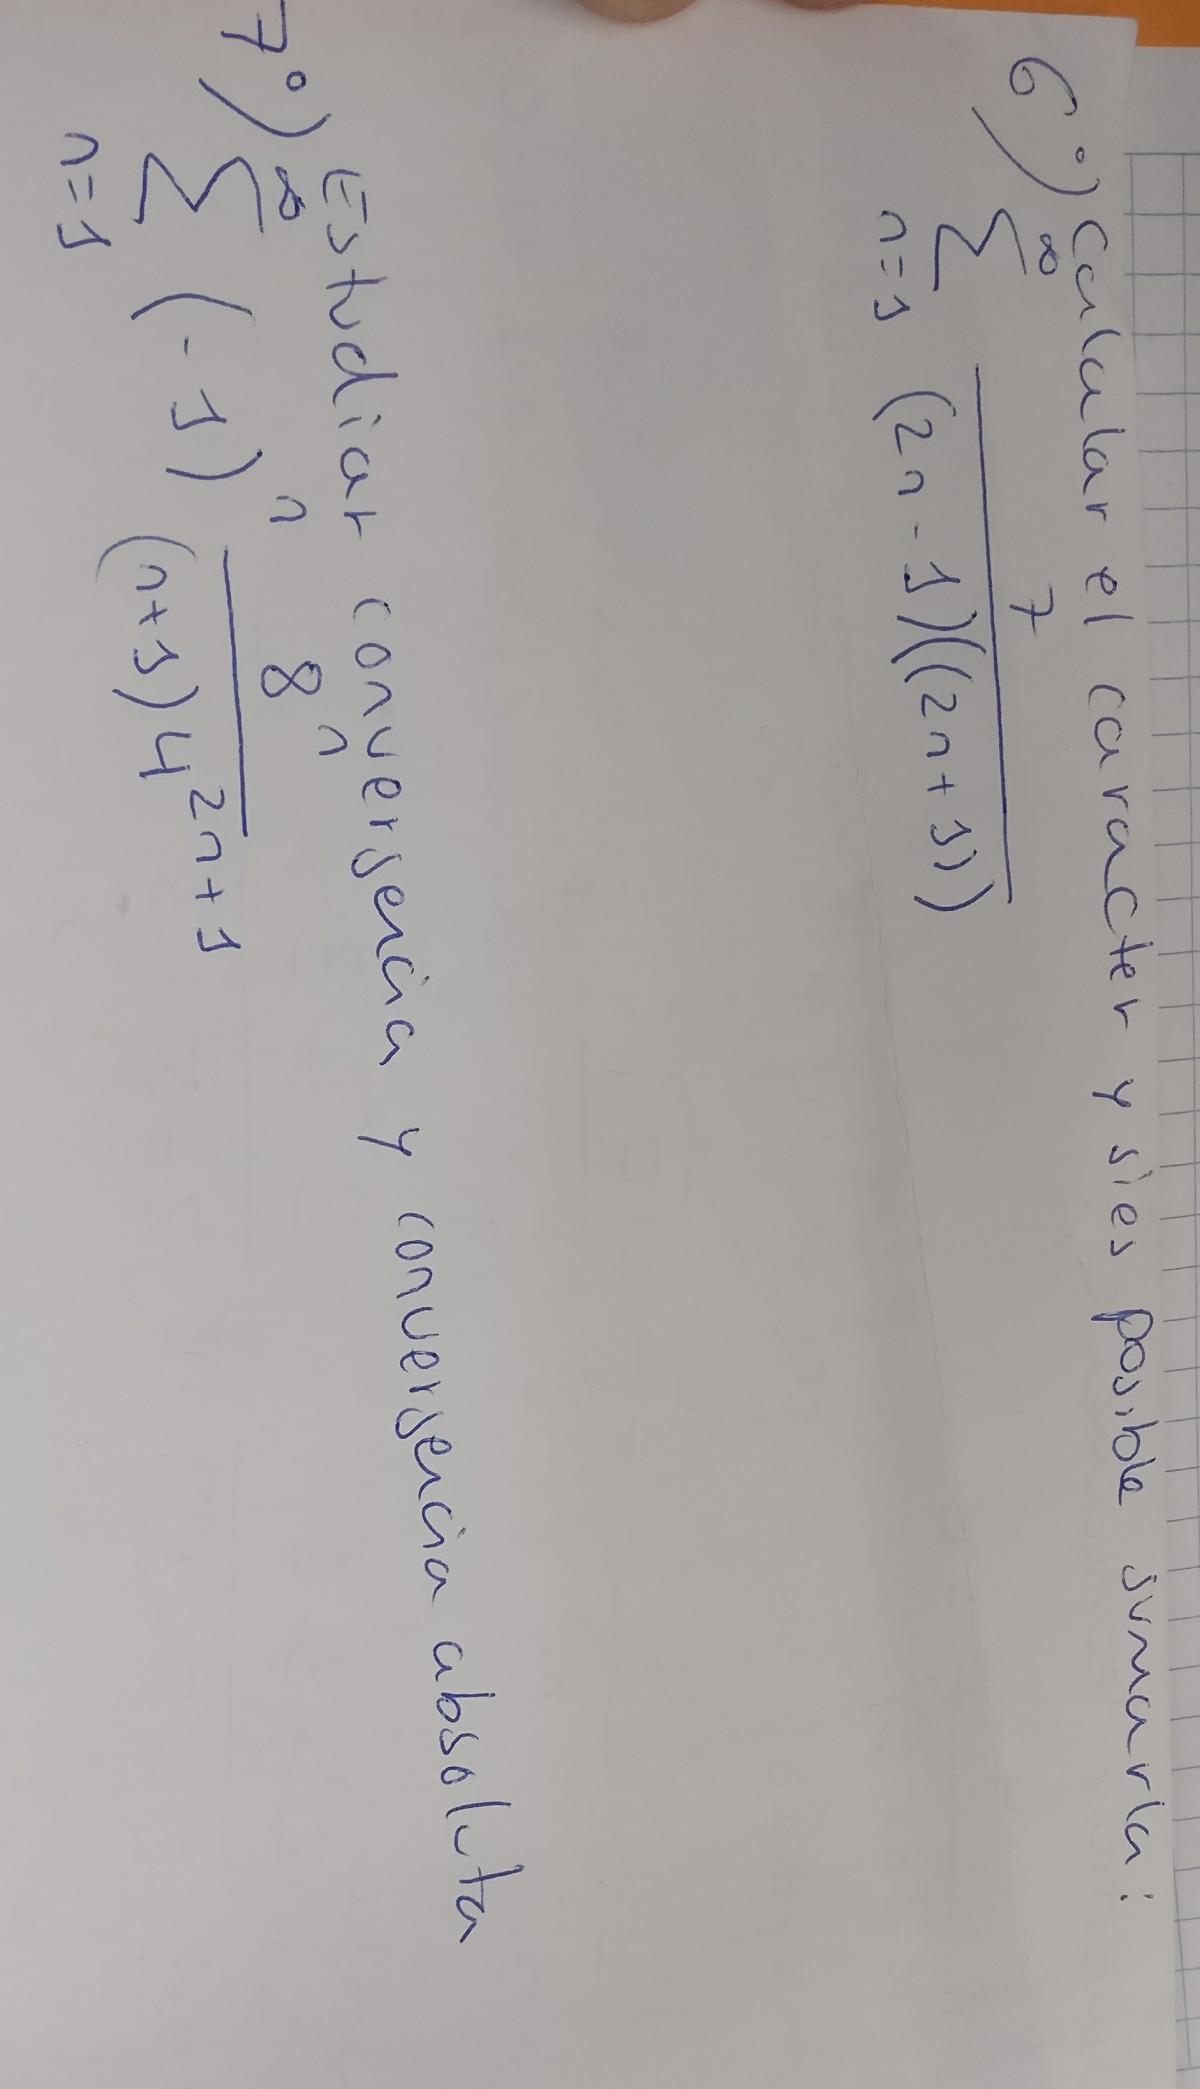 6º) Calcular el caracter y si es posible sumarla:
∞
Σ 7 / (2n-1)((2n+1))
n=1
7º) Estudiar convergencia y convergencia absoluta
∞
Σ (-1)^n 8^n / (n+1)4^(2n+1)
n=1